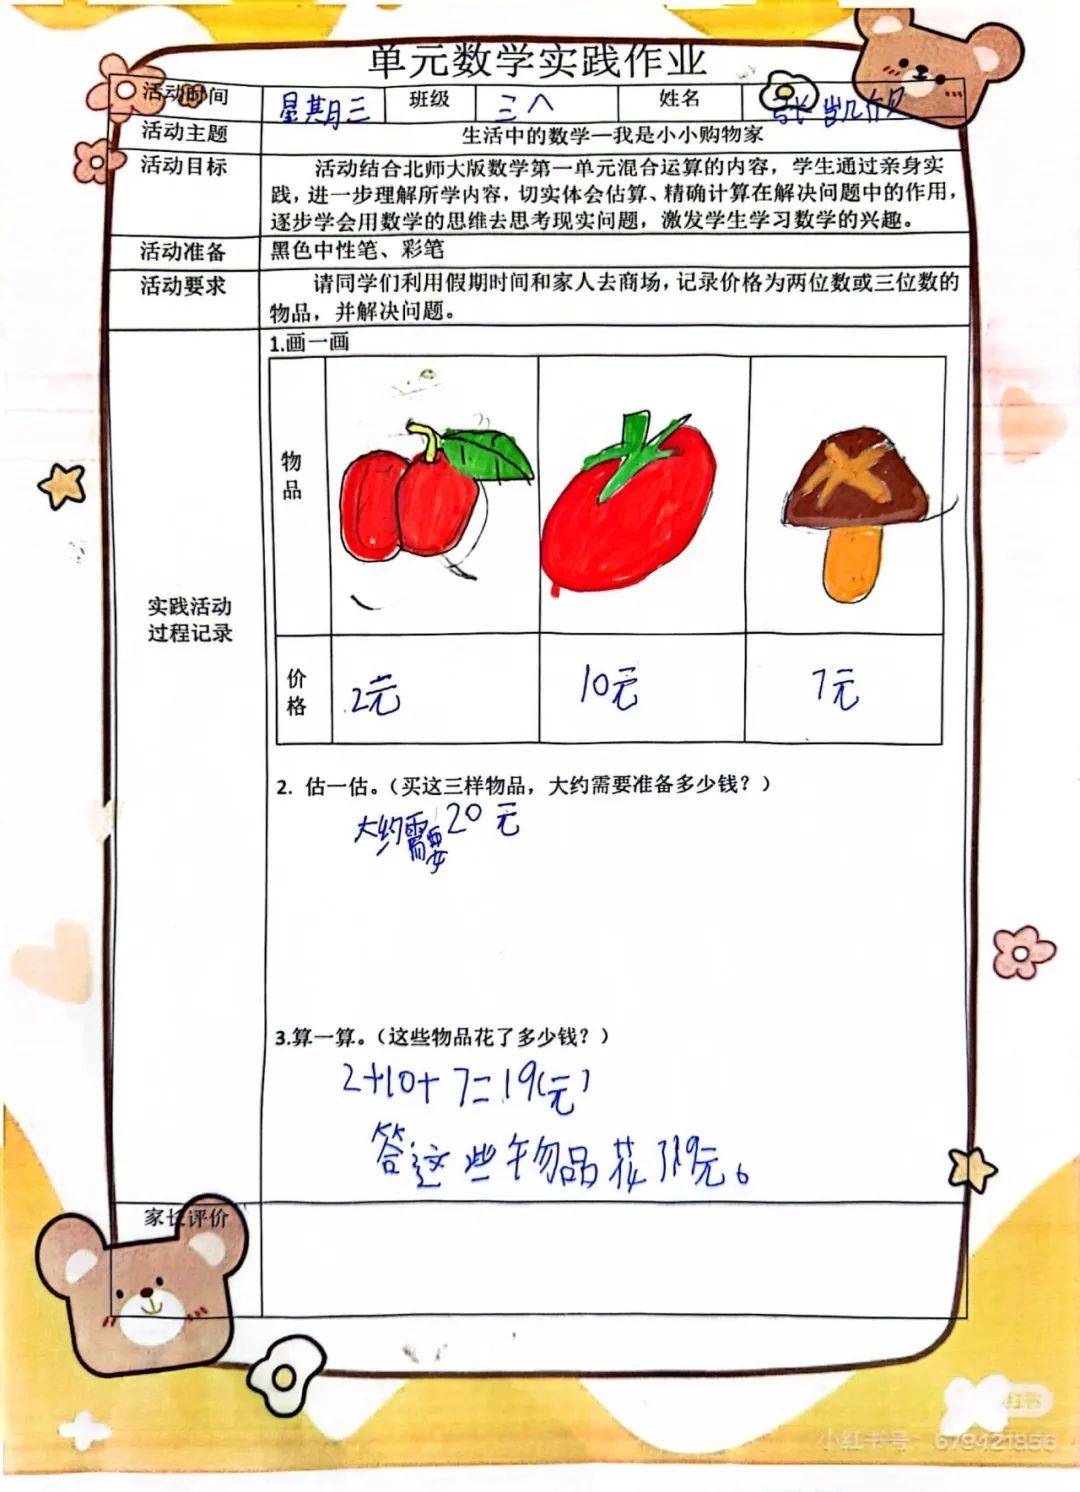 单元数学实践作业
活动时间 星期三 班级 三八 姓名 张凯
活动主题 生活中的数学—我是小小购物家
活动目标 活动结合北师大版数学第一单元混合运算的内容，学生通过亲身实
践，进一步理解所学内容，切实体会估算、精确计算在解决问题中的作用，
逐步学会用数学的思维去思考现实问题，激发学生学习数学的兴趣。
活动准备 黑色中性笔、彩笔
活动要求 请同学们利用假期时间和家人去商场，记录价格为两位数或三位数的
物品，并解决问题。
1.画一画
物
品
实践活动
过程记录
价
格
2元 10元 7元
2. 估一估。（买这三样物品，大约需要准备多少钱？）
大约需要20元
3.算一算。（这些物品花了多少钱？）
2+10+7=19(元)
答这些物品花了19元。
家长评价
小红书号：679421856